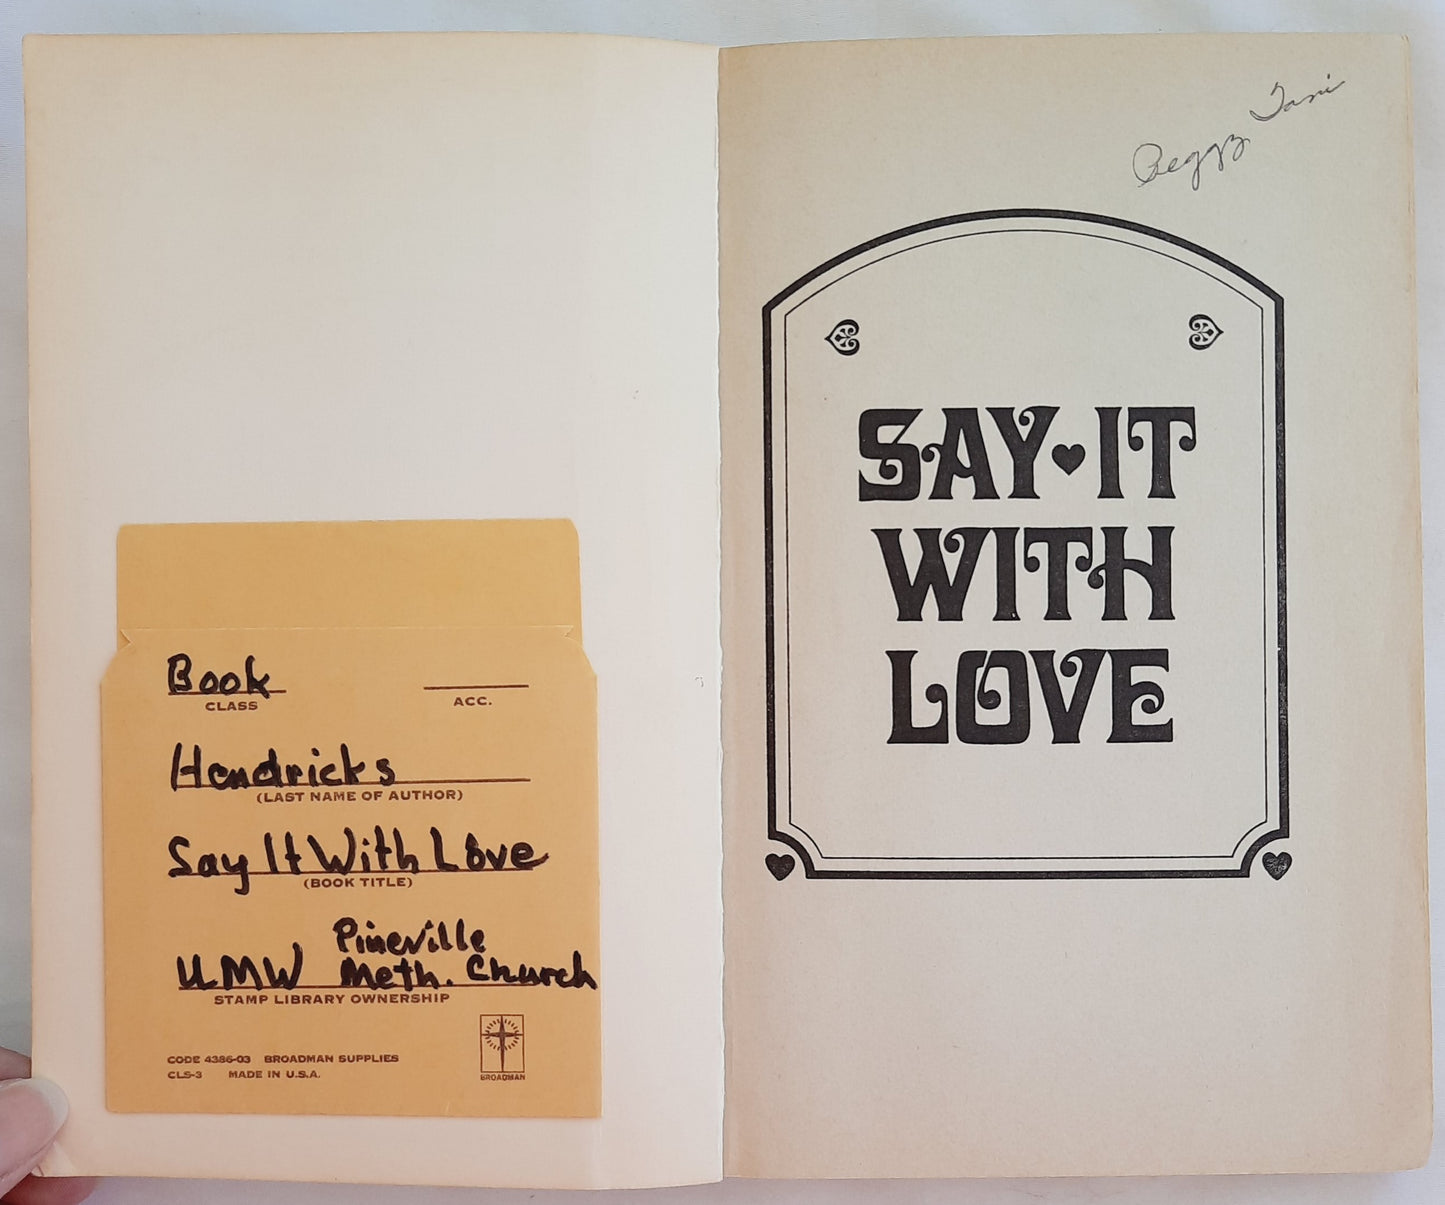 Book
CLASS ACC.
Hendricks
(LAST NAME OF AUTHOR)
Say It With Love
(BOOK TITLE)
Pineville
UMW Meth. Church
STAMP LIBRARY OWNERSHIP
CODE 4386-03 BROADMAN SUPPLIES
CLS-3 MADE IN U.S.A.
BROADMAN
Peggy
SAY IT
WITH
LOVE